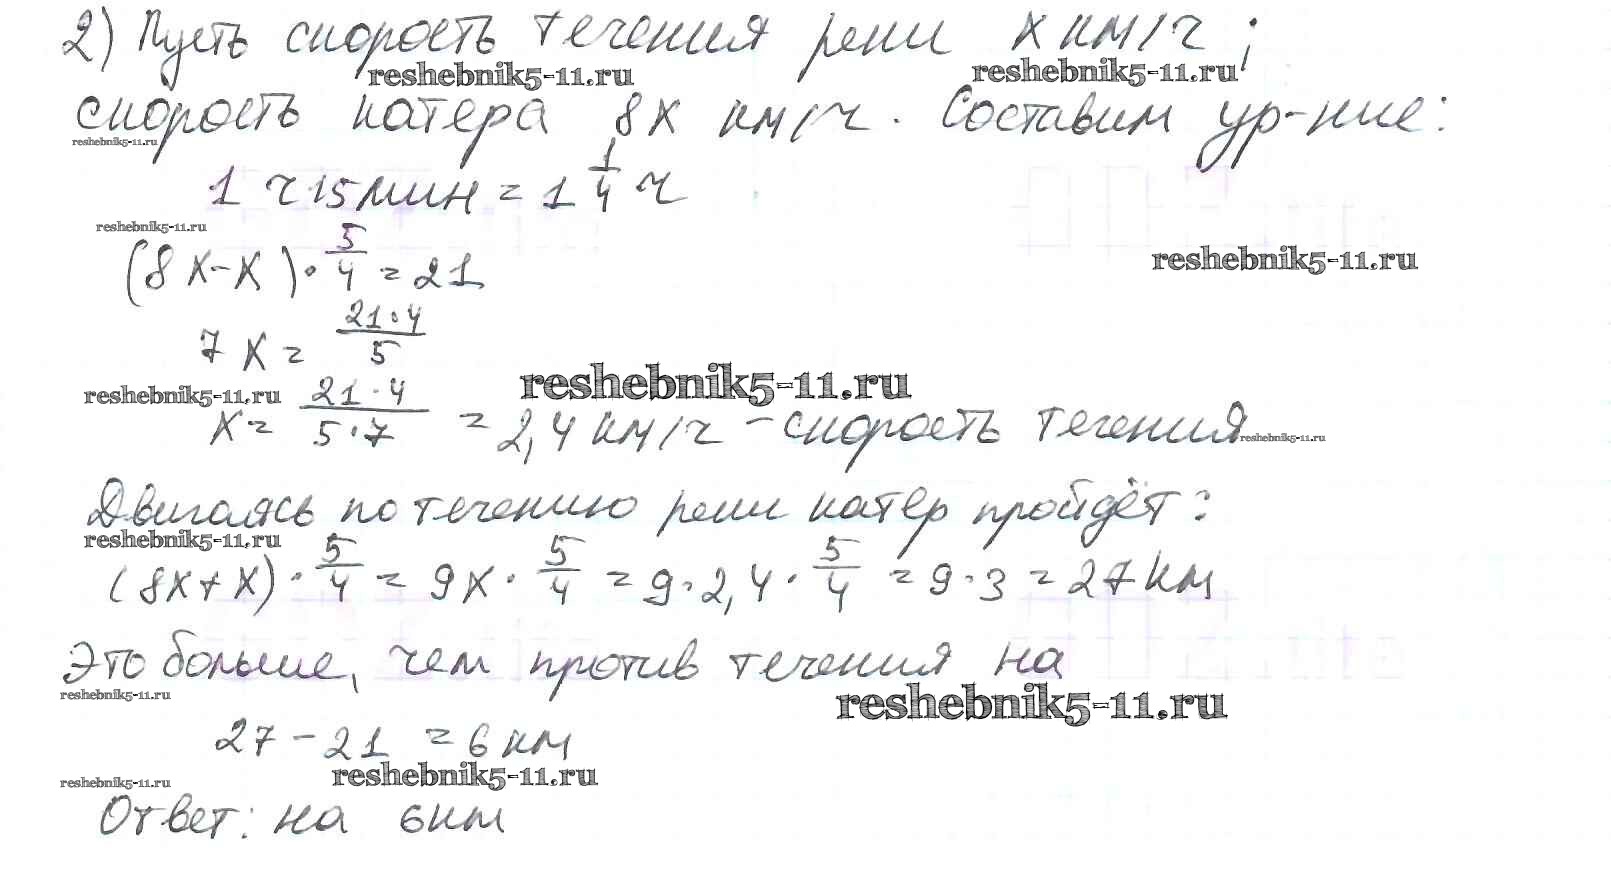 2) Пусть скорость течения реки х км/ч;
reshebnik5-11.ru reshebnik5-11.ru
скорость катера 8х км/ч. Составим ур-ние:
reshebnik5-11.ru
1 ч 15 мин = 1 1/4 ч
reshebnik5-11.ru
(8х-х)·5/4 = 21
reshebnik5-11.ru
7х = 21·4/5
reshebnik5-11.ru reshebnik5-11.ru
х = 21·4/5·7 = 2,4 км/ч - скорость течения
reshebnik5-11.ru
Двигаясь по течению реки катер пройдёт:
reshebnik5-11.ru
(8х+х)·5/4 = 9х·5/4 = 9·2,4·5/4 = 9·3 = 27 км
Это больше, чем против течения на
reshebnik5-11.ru reshebnik5-11.ru
27 - 21 = 6 км
reshebnik5-11.ru reshebnik5-11.ru
Ответ: на 6 км